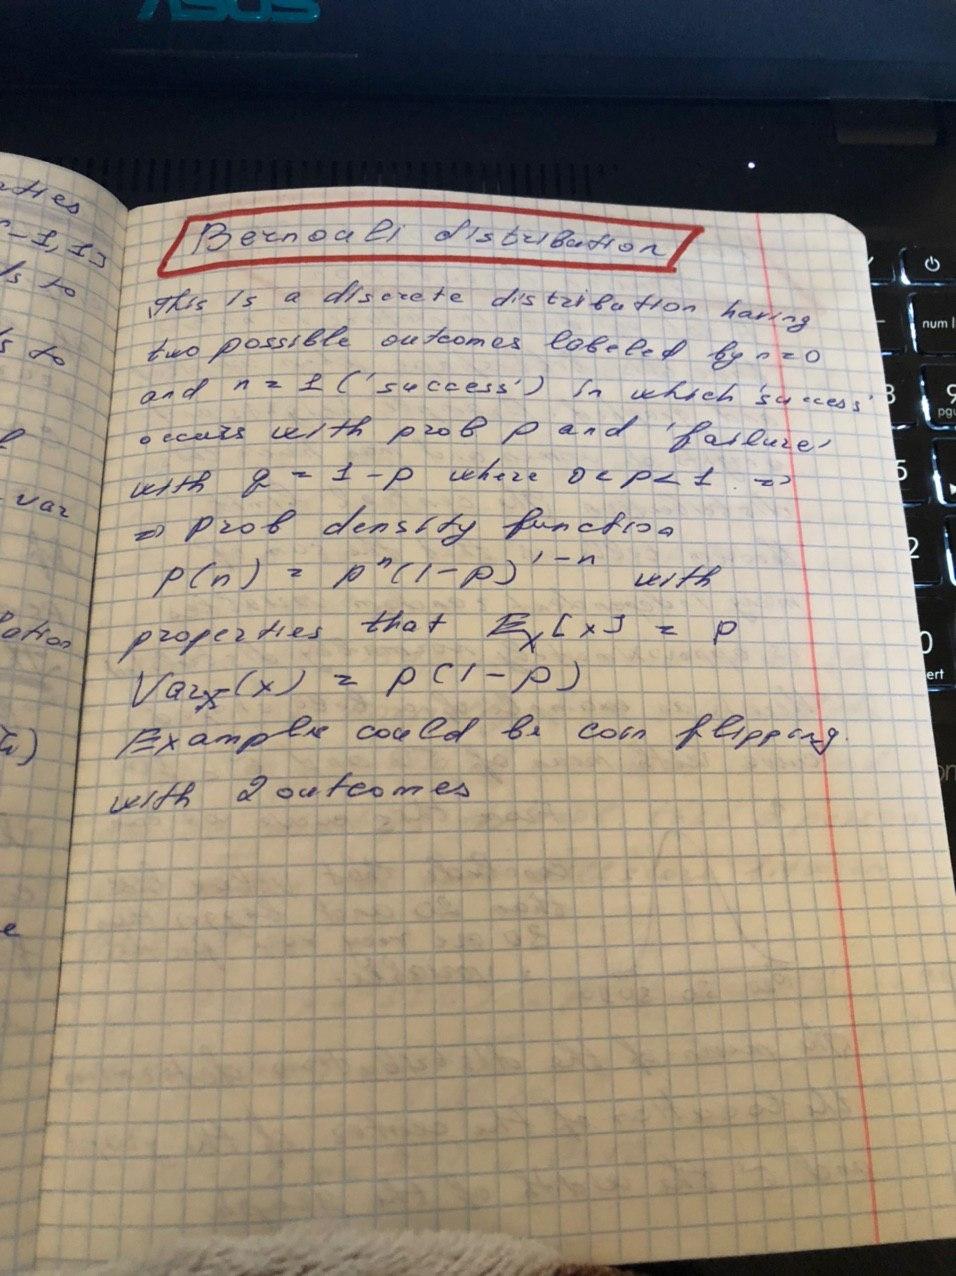 ASUS
Bernoulli distribution
This is a discrete distribution having
two possible outcomes labeled by n=0
and n = 1 ('success') in which 'success'
occurs with prob p and 'failure'
with q = 1-p where 0<p<1 =>
=> prob density function
p(n) = pⁿ(1-p)¹⁻ⁿ with
properties that Eₓ[x] = p
Varₓ(x) = p(1-p)
Example could be coin flipping
with 2 outcomes
-1, 1]
to
to
var
e
num l
9
5
2
0